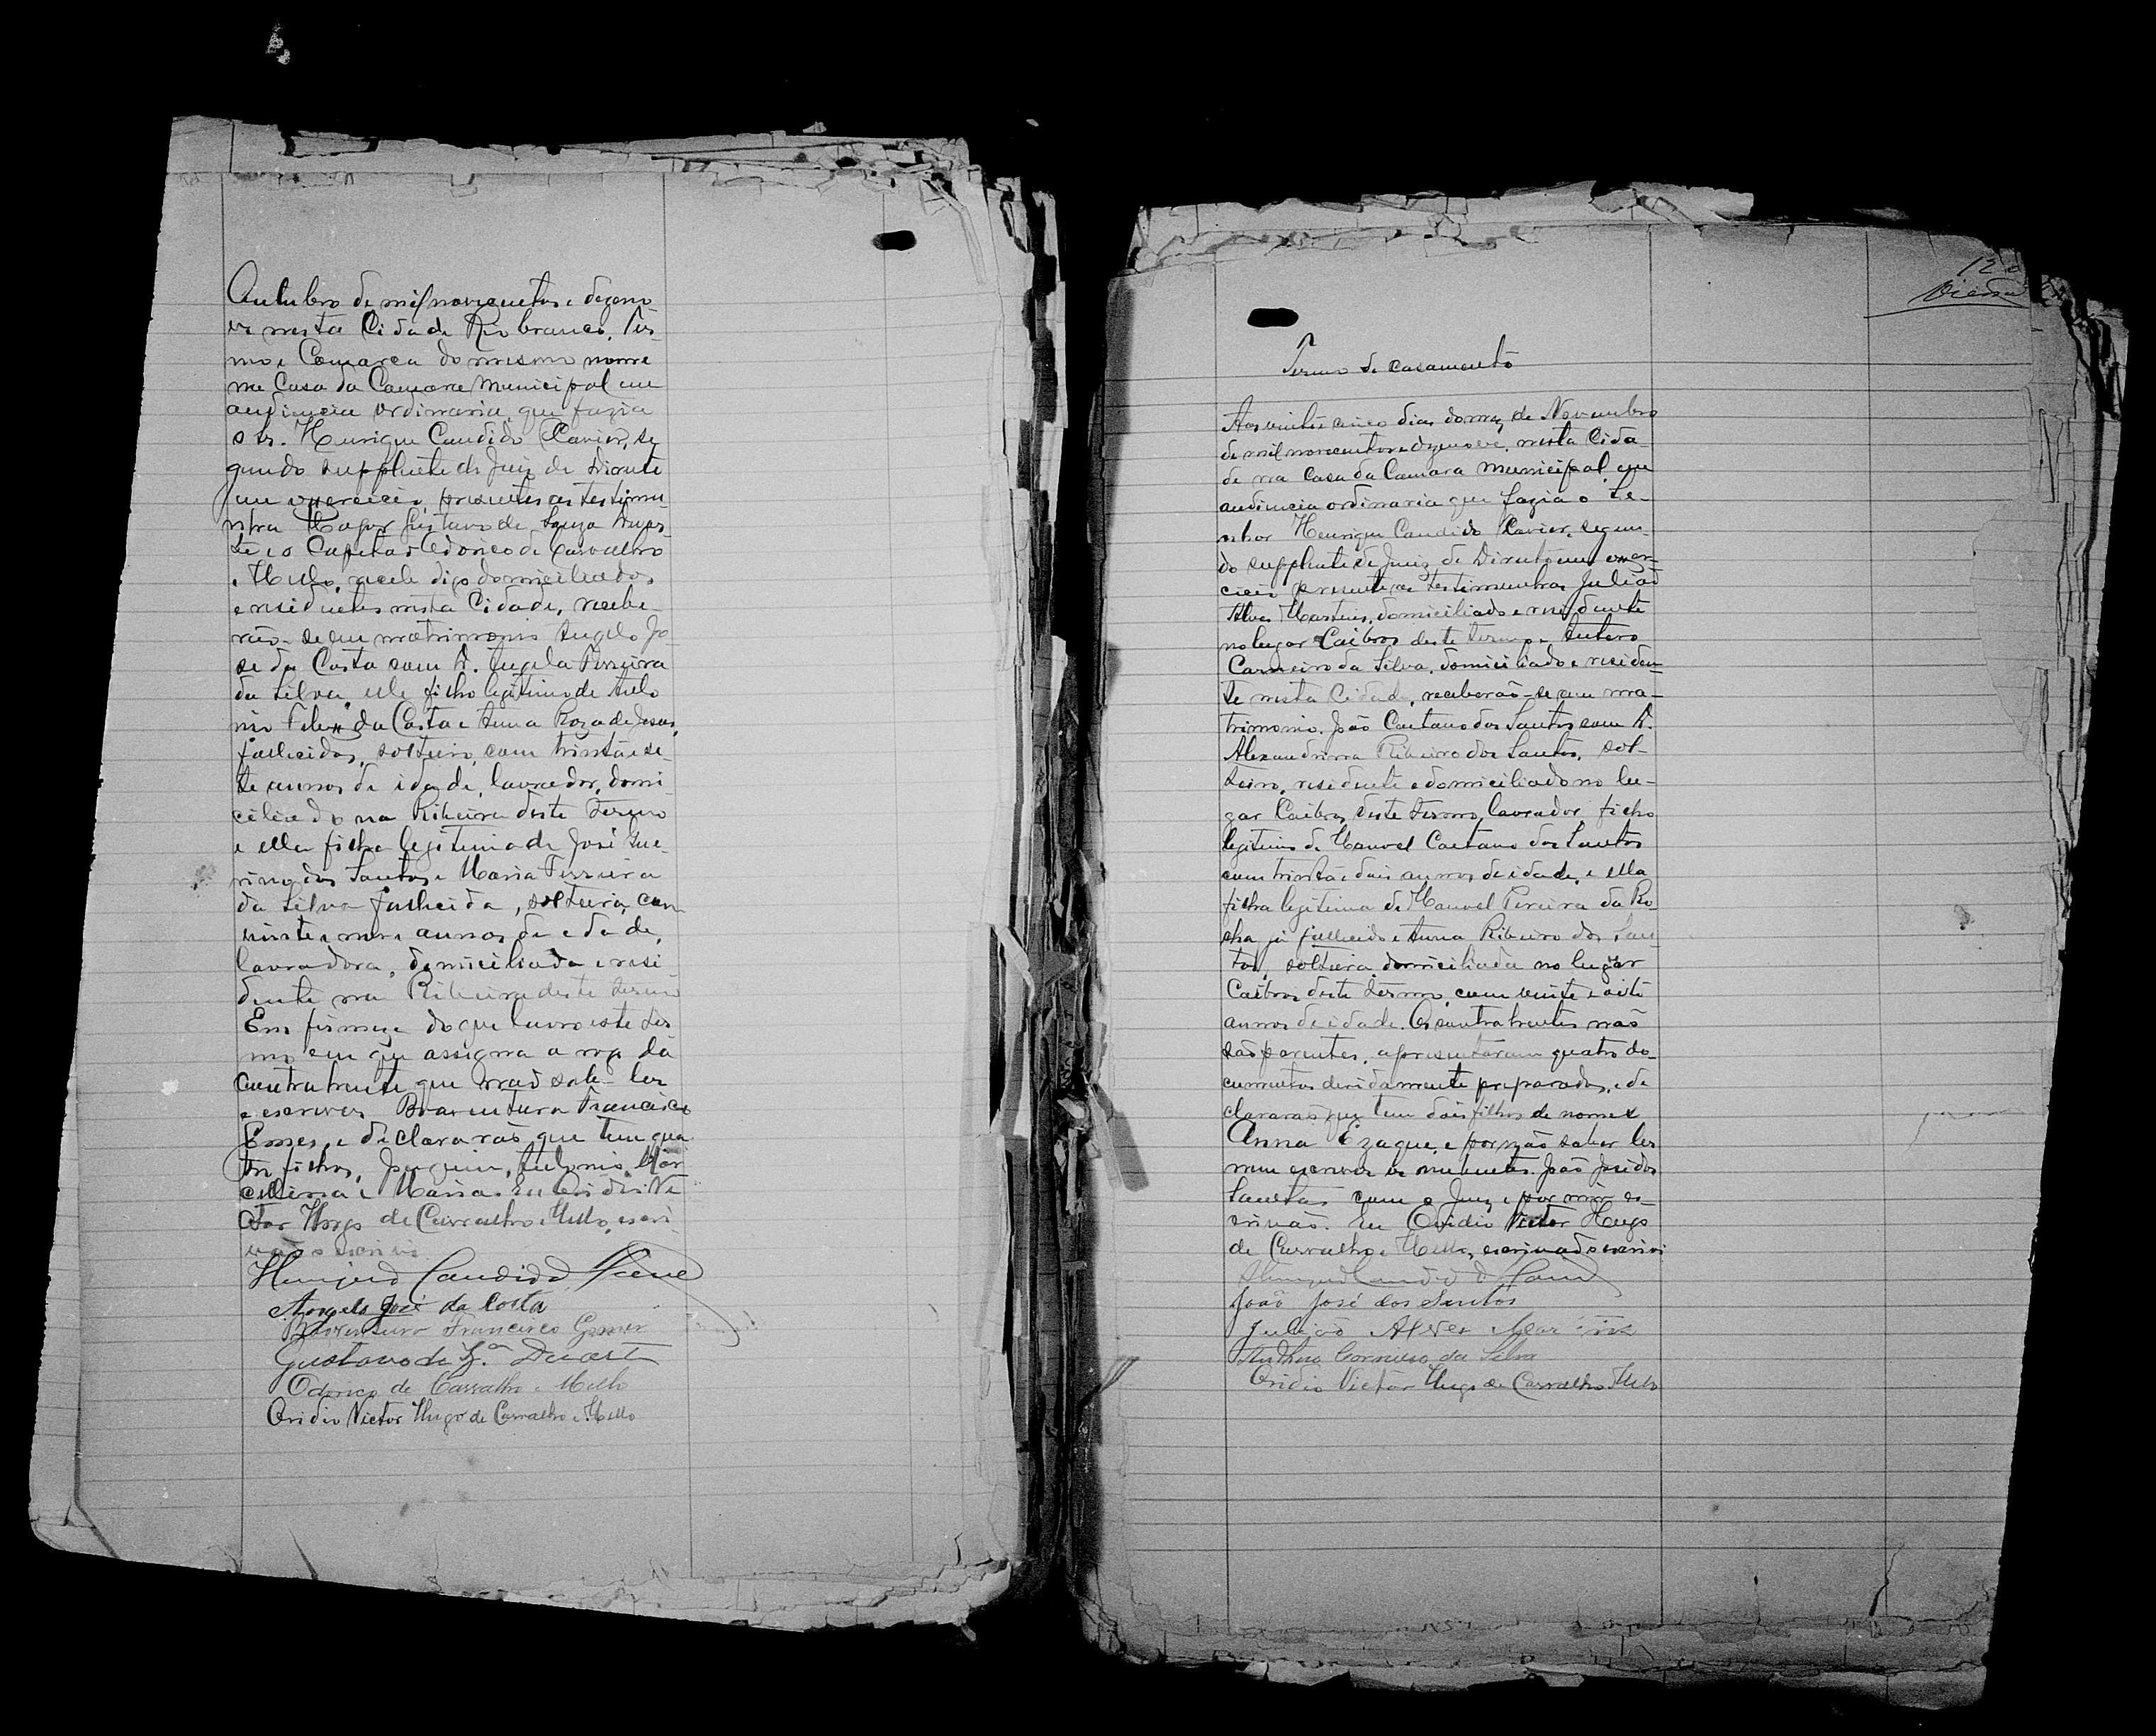 Outubro de mil novecentos e dezeno
ve nesta Cidade Rio branco, Ter-
mo e Comarca do mesmo nome
na Casa da Camara Municipal em
audiencia ordinaria que fazia
o sr. Henrique Candido Xavier, se
gundo supplente de Juiz de Direito
em exercicio, presentes as testemu-
nhas Major Gustavo de Souza Duar-
te e o Capitão Odorico de Carvalho
e Mello, digo domiciliados
e residentes nesta Cidade, recebe-
rão-se em matrimonio Angelo Jo-
se da Costa com D. Angela Ferreira
da Silva elle filho legitimo de Anto
nio Felix da Costa e Anna Roza de Jesus,
fallecidos, solteiro, com trinta e se-
te annos de idade, lavrador, domi-
ciliado na Ribeira deste Termo
e ella filha legitima de José
dos Santos e Maria Ferreira
da Silva fallecida, solteira, com
vinte e nove annos de edade,
lavradora, domiciliada e resi-
dente na Ribeira deste termo
Em firmeza do que lavro este ter
mo em que assigna a rogo da
contrahente que não sabe ler
e escrever Boaventura Francisco
Gomes, e declararão que tem qua
tro filhos, Joaquim, Antonio, Mar
cellina e Maria. Eu Ovidio Vi
ctor Hugo de Carvalho e Mello, escri
vão o escrivi.
Henrique Candido Xavier
Angelo José da Costa
Boaventura Francisco Gomes
Gustavo de Sza Duarte
Odorico de Carvalho e Mello
Ovidio Victor Hugo de Carvalho e Mello
120
Termo de casamento
Aos vinte cinco dias do mez de Novembro
de mil novecentos e dezenove, nesta Cida-
de na Casa da Camara Municipal em
audiencia ordinaria que fazia o Se-
nhor Henrique Candido Xavier, segun-
do supplente de Juiz de Direito em exer-
cicio presente as testemunhas Julião
Alves Martins, domiciliado e residente
no lugar Caibros deste termo e Antero
Carneiro da Silva, domiciliado e residen-
te nesta Cidade, receberão-se em ma-
trimonio João Caetano dos Santos com D.
Alexandrina Ribeiro dos Santos, sol-
teiro, residente e domiciliado no lu-
gar Caibros deste termo, lavrador, filho
legitimo de Manoel Caetano dos Santos
com trinta e dois annos de idade, e ella
filha legitima de Manoel Pereira da Ro-
cha já fallecido e Anna Ribeiro dos San
tos, solteira, domiciliada no lugar
Caibros deste termo, com vinte e oito
annos de idade. Os contrahentes não
são parentes, apresentaram quatro do-
cumentos devidamente preparados, e de
clararão que tem dois filhos de nomes
Anna Ezaque, e por não saber ler
nem escrever os nubentes. João José dos
Santos com o Juiz e por mim es-
crivão. Eu Ovidio Victor Hugo
de Carvalho e Mello, escrivão o escrivi
Henrique Candido Xavier
João José dos Santos
Julião Alves Martins
Anthero Carneiro da Silva
Ovidio Victor Hugo de Carvalho e Mello